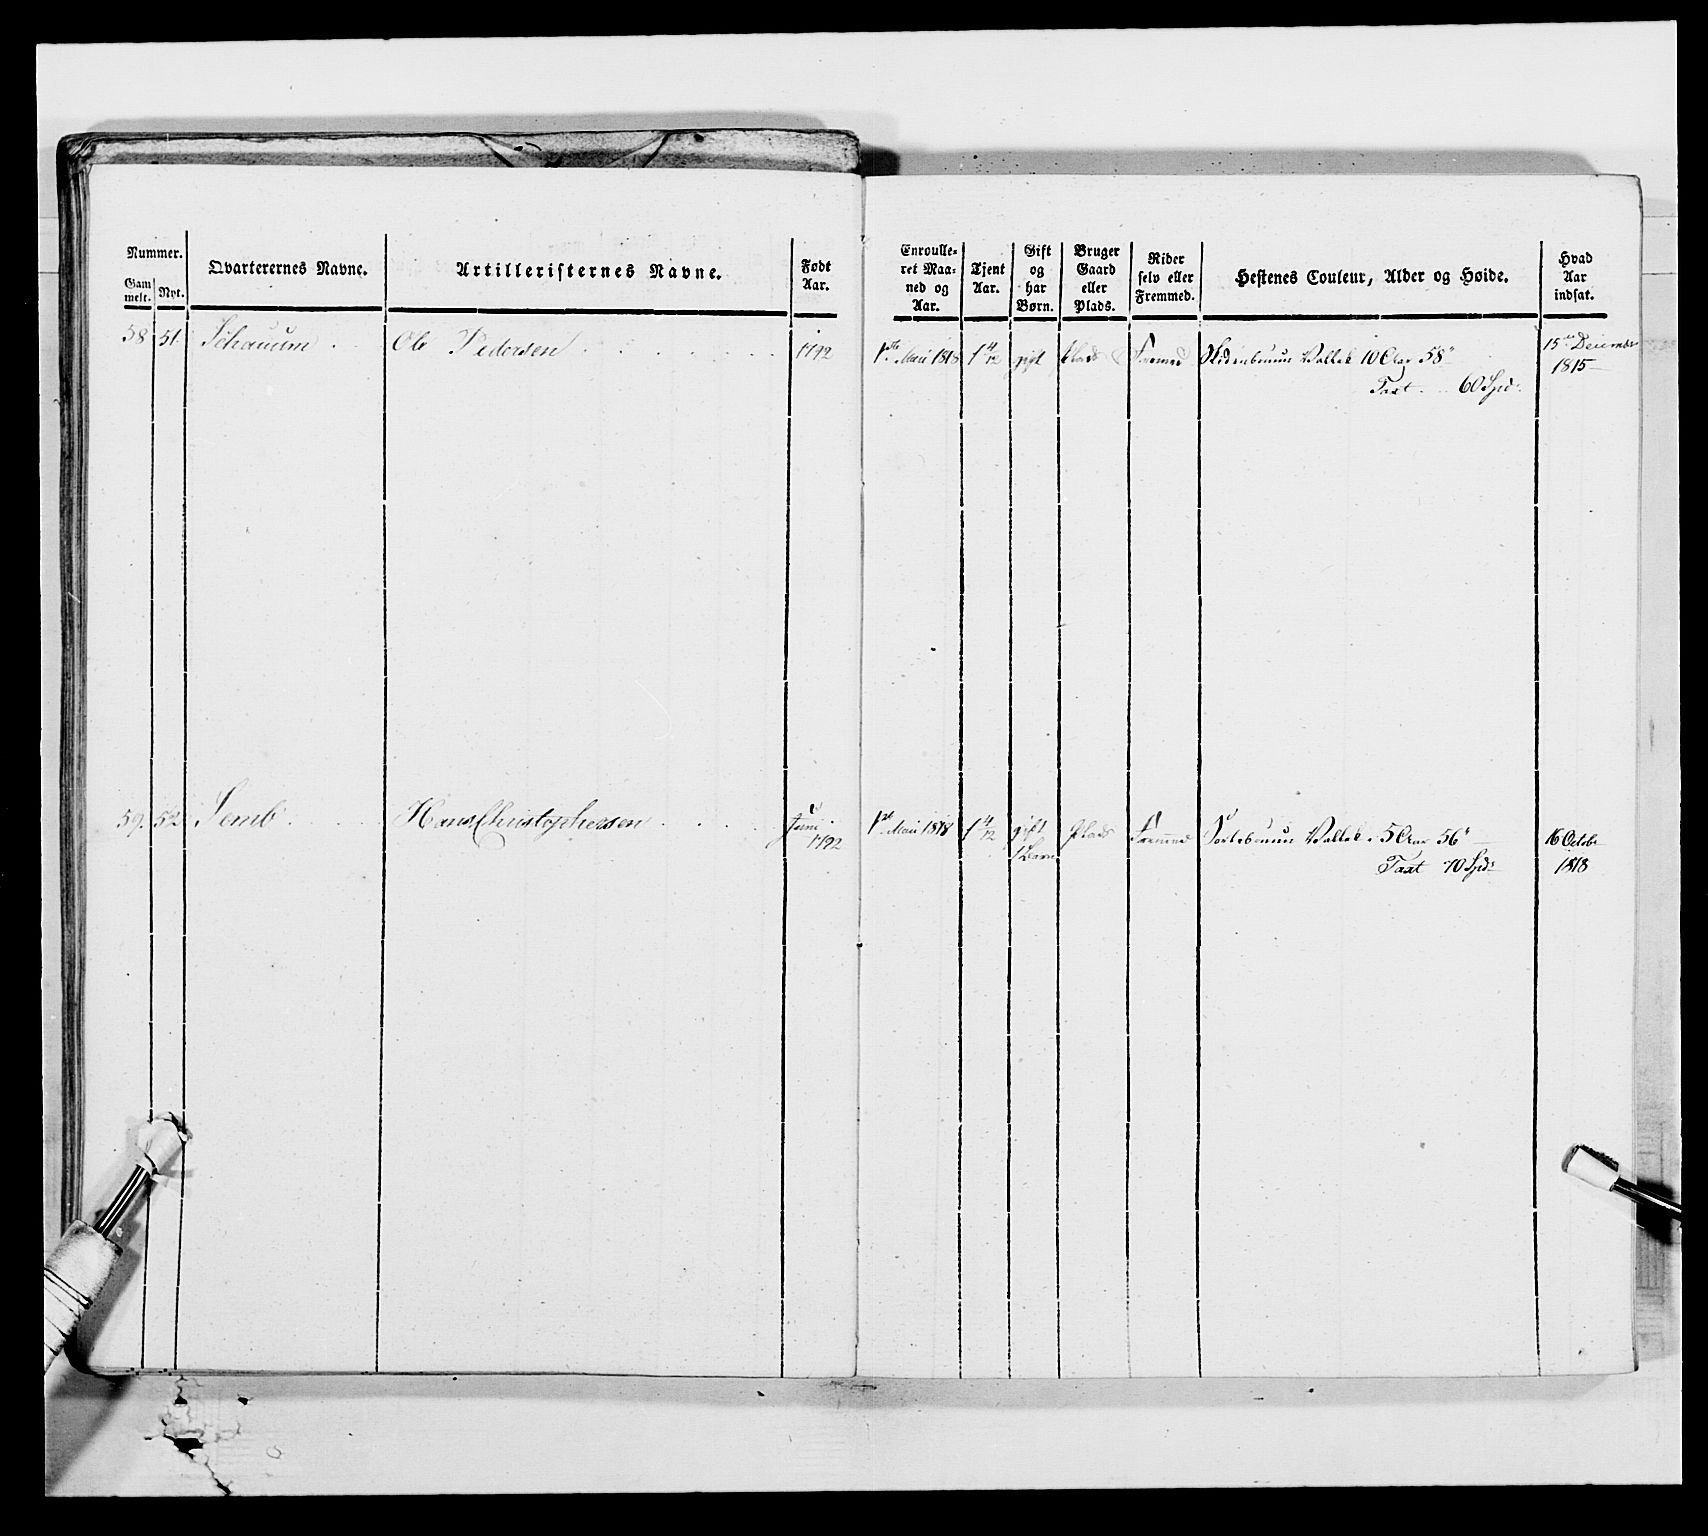 Nummer.
Gam
melt.
Nyt.
Qvarterernes Navne.
Artilleristernes Navne.
Født
Aar.
Enroulle-
ret Maa-
ned og
Aar.
Tjent
Aar.
Gift
og
har
Børn.
Bruger
Gaard
eller
Plads.
Rider
selv eller
Fremmed.
Hestenes Couleur, Alder og Høide.
Hvad
Aar
indsat.
58 51. Schauum Ole Pedersen 1792 1ste Maii 1818 1 4/12 gift Plads Fremed Vallak 10 Aar 58"
Taxt 60 Spd.
15de December
1815
59. 52 Semb Hans Christophersen Juni
1792
1ste Maii 1818 1 4/12 gift
1 Barn
Plads Fremmed Vallak 5 Aar 56"
Taxt 70 Spd.
16 Octobr
1818